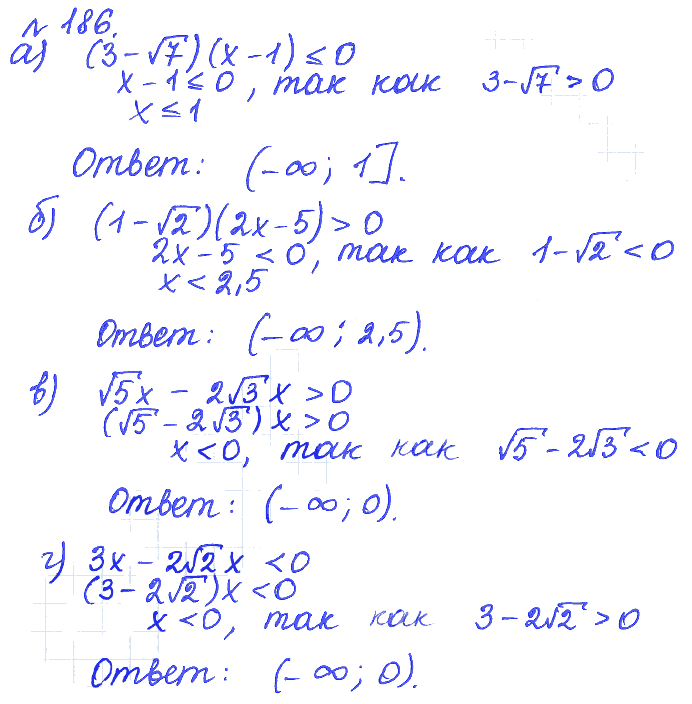 № 186.
а) (3-√7)(x-1) ≤ 0
x-1 ≤ 0, так как 3-√7 > 0
x ≤ 1
Ответ: (-∞; 1].
б) (1-√2)(2x-5) > 0
2x-5 < 0, так как 1-√2 < 0
x < 2,5
Ответ: (-∞; 2,5).
в) √5x - 2√3x > 0
(√5 - 2√3)x > 0
x < 0, так как √5 - 2√3 < 0
Ответ: (-∞; 0).
г) 3x - 2√2x < 0
(3 - 2√2)x < 0
x < 0, так как 3 - 2√2 > 0
Ответ: (-∞; 0).